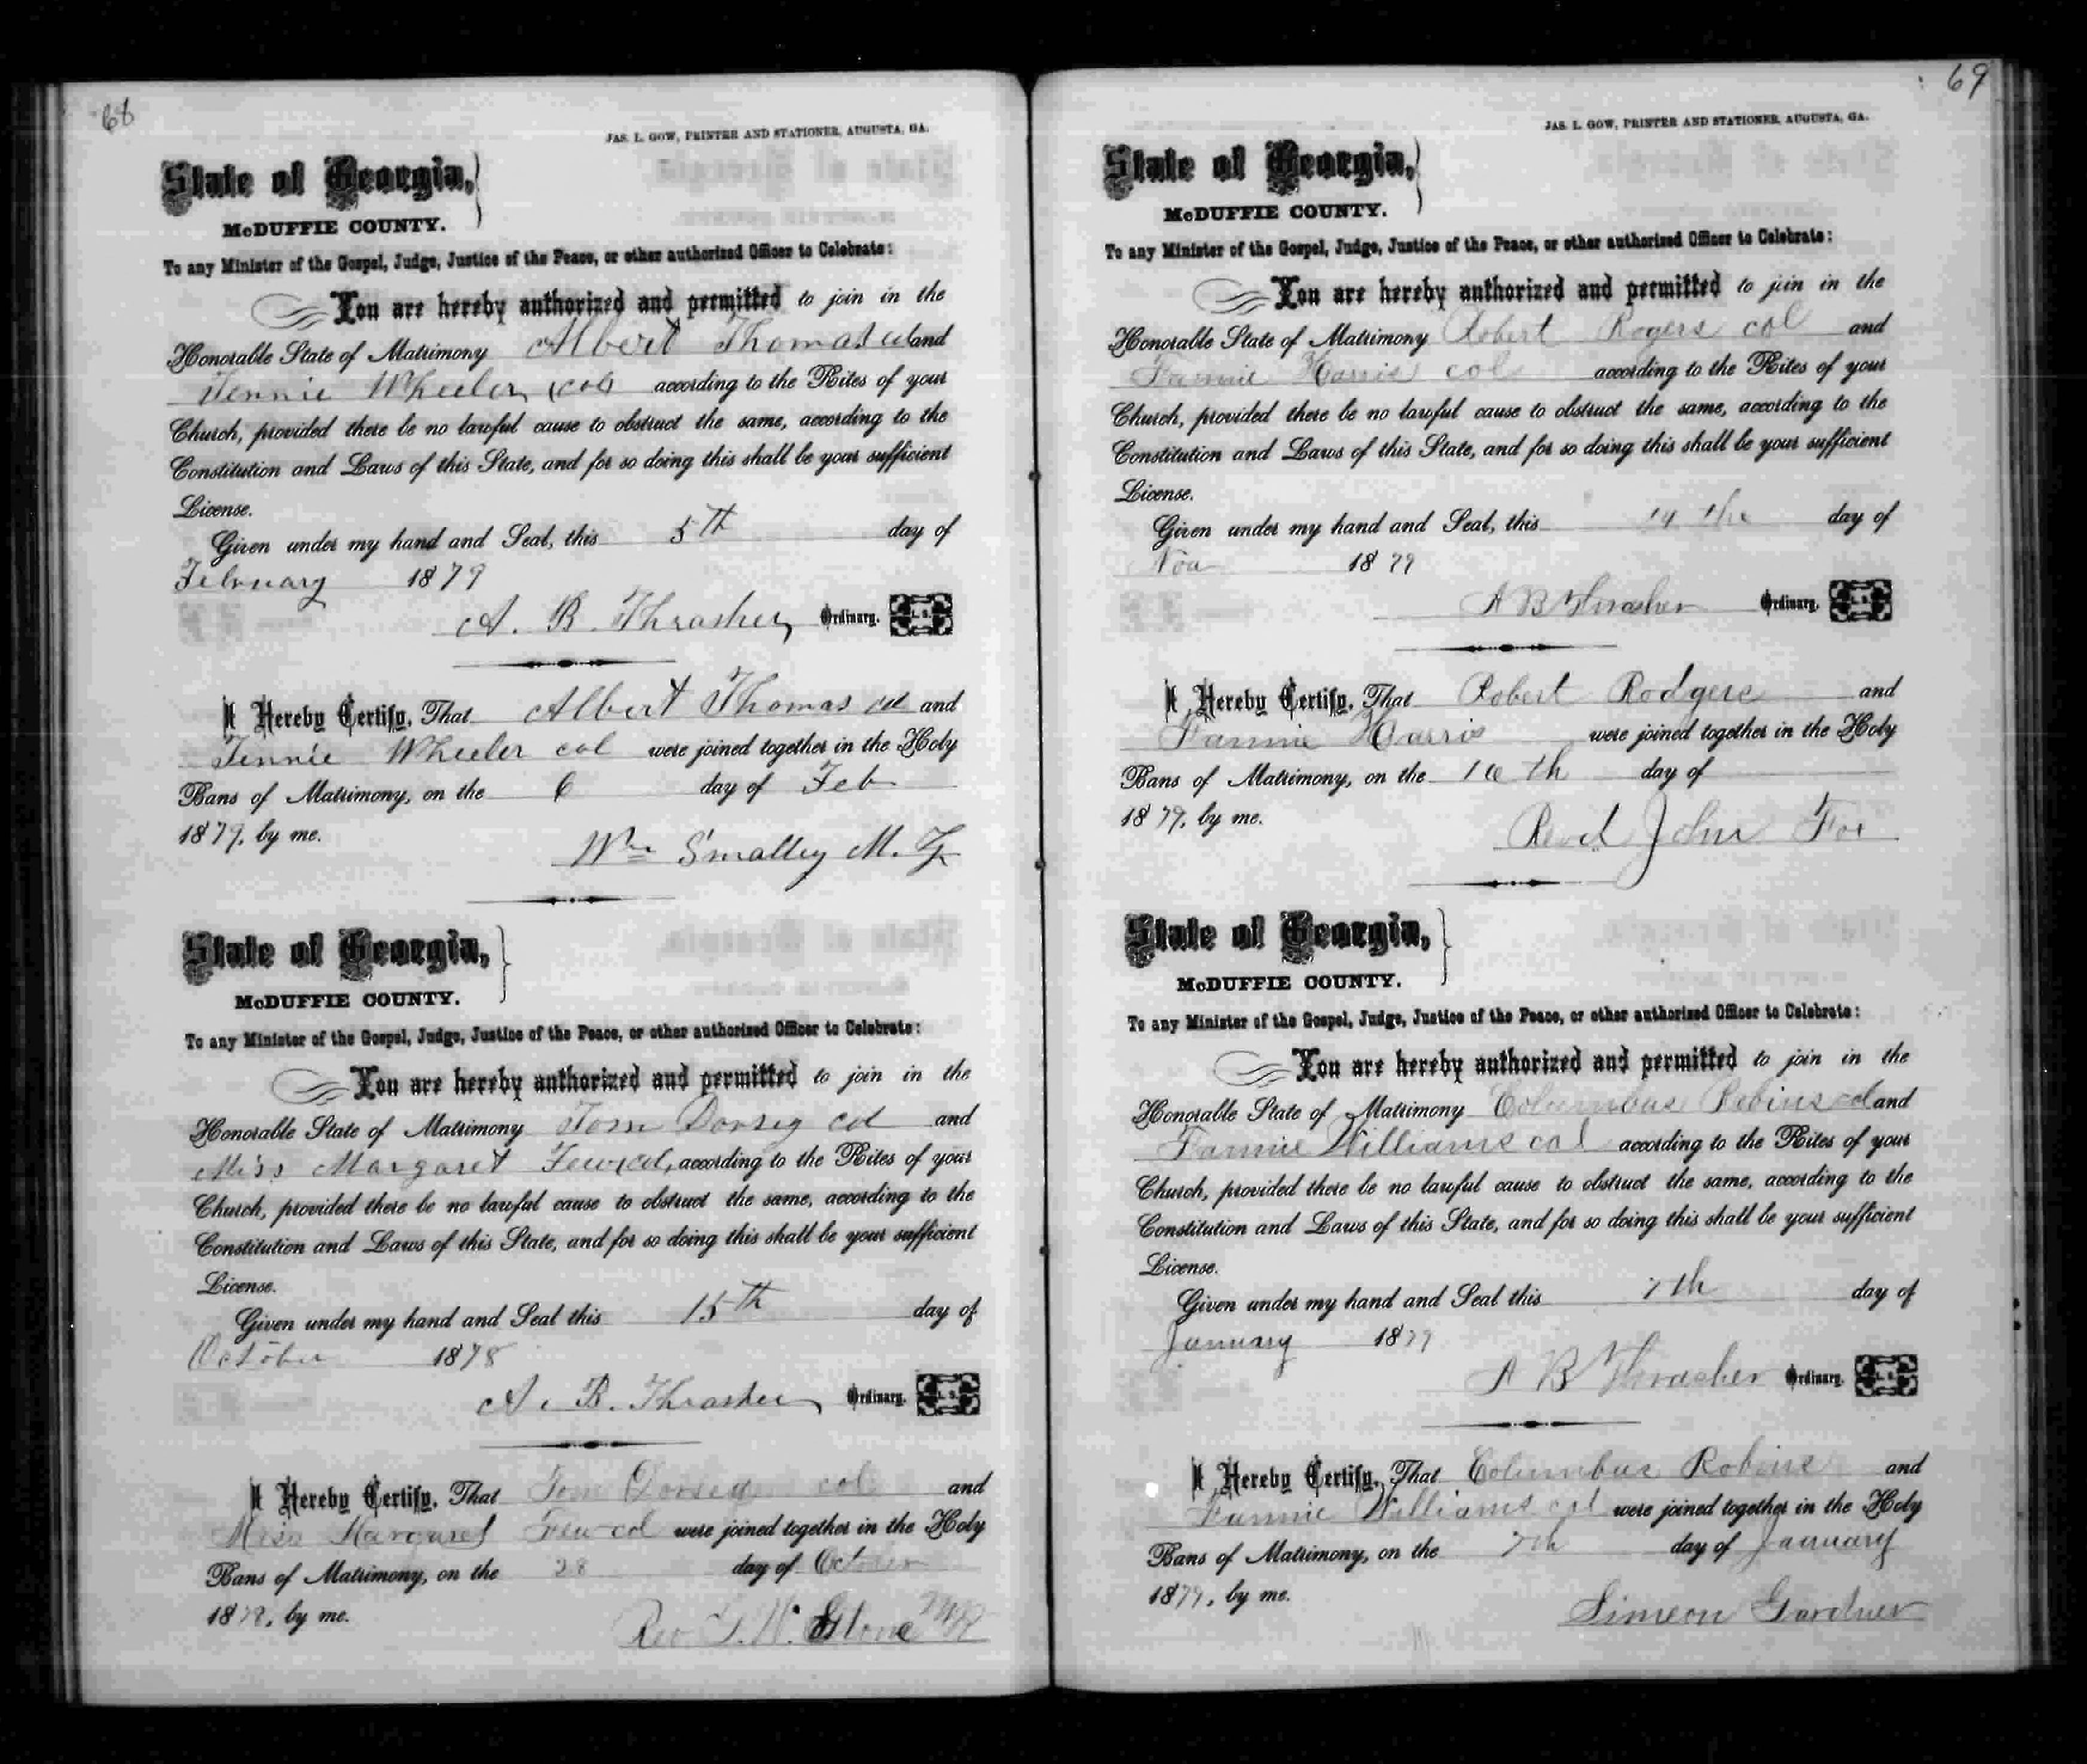 68
JAS. L. GOW, PRINTER AND STATIONER, AUGUSTA, GA.
State of Georgia,
McDUFFIE COUNTY.
To any Minister of the Gospel, Judge, Justice of the Peace, or other authorized Officer to Celebrate:
You are hereby authorized and permitted to join in the
Honorable State of Matrimony Albert Thomas col and
Jennie Wheeler (col) according to the Rites of your
Church, provided there be no lawful cause to obstruct the same, according to the
Constitution and Laws of this State, and for so doing this shall be your sufficient
License.
Given under my hand and Seal, this 5th day of
February 1879
A. B. Thrasher, Ordinary. L. S.
I Hereby Certify, That Albert Thomas col and
Jennie Wheeler col were joined together in the Holy
Bans of Matrimony, on the 6 day of Feb
1879, by me.
Wm Smalley M. G.
State of Georgia,
McDUFFIE COUNTY.
To any Minister of the Gospel, Judge, Justice of the Peace, or other authorized Officer to Celebrate:
You are hereby authorized and permitted to join in the
Honorable State of Matrimony Tom Dorsey col and
Miss Margaret Few col, according to the Rites of your
Church, provided there be no lawful cause to obstruct the same, according to the
Constitution and Laws of this State, and for so doing this shall be your sufficient
License.
Given under my hand and Seal this 15th day of
October 1878
A. B. Thrasher, Ordinary. L. S.
I Hereby Certify, That Tom Dorsey col and
Miss Margaret Few col were joined together in the Holy
Bans of Matrimony, on the 28 day of October
1878, by me.
Rev
69
JAS. L. GOW, PRINTER AND STATIONER, AUGUSTA, GA.
State of Georgia,
McDUFFIE COUNTY.
To any Minister of the Gospel, Judge, Justice of the Peace, or other authorized Officer to Celebrate:
You are hereby authorized and permitted to join in the
Honorable State of Matrimony Robert Rogers col and
Fannie Harris col according to the Rites of your
Church, provided there be no lawful cause to obstruct the same, according to the
Constitution and Laws of this State, and for so doing this shall be your sufficient
License.
Given under my hand and Seal, this 14 the day of
Nov 1879
A B Thrasher Ordinary. L. S.
I Hereby Certify, That Robert Rodgers and
Fannie Harris were joined together in the Holy
Bans of Matrimony, on the 16th day of
1879, by me.
Revd John Fox
State of Georgia,
McDUFFIE COUNTY.
To any Minister of the Gospel, Judge, Justice of the Peace, or other authorized Officer to Celebrate:
You are hereby authorized and permitted to join in the
Honorable State of Matrimony Columbus Robins col and
Fannie Williams col according to the Rites of your
Church, provided there be no lawful cause to obstruct the same, according to the
Constitution and Laws of this State, and for so doing this shall be your sufficient
License.
Given under my hand and Seal this 7th day of
January 1879
A B Thrasher Ordinary. L. S.
I Hereby Certify, That Columbus Robins and
Fannie Williams col were joined together in the Holy
Bans of Matrimony, on the 7th day of January
1879, by me.
Simeon Gardner